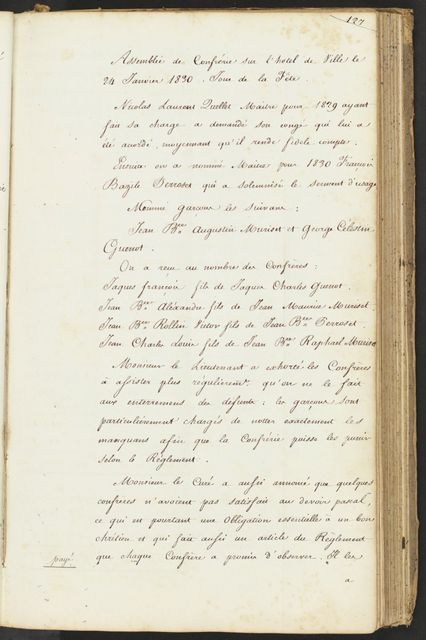 127
Assemblée de Confrérie sur l'hotel de Ville le
24 Janvier 1830. Jour de la Fête.
Nicolas Laurent Quellet Maitre pour 1829 ayant
fan sa charge a demandé son congé qui lui a
été acordé, moyennant qu'il rende fidele compte.
Ensuite on a nommé Maitre pour 1830 François
Bazile Perroset qui a solemnisé le serment d'usage
Nommé garçons les suivans :
Jean Bte Augustin Muriset et George Célestin
Guenot.
On a reçu au nombre des Confrères :
Jaques françois fils de Jaques Charles Guenot.
Jean Bte Aléxandre fils de Jean Maurice Muriset.
Jean Bte Rollin Victor fils de Jean Bte Perroset.
Jean Charles Louis fils de Jean Bte Raphael Muriset
Monsieur le Lieutenant a exhorté les Confrères
à assister plus régulièremt. qu'on ne le fait
aux enterremens des defunts : les garçons sont
particulièrement chargés de notter exactement les
manquans afin que la Confrérie puisse les punir
selon le Réglement.
Monsieur le Curé a aussi annoncé que quelques
confreres n'avoient pas satisfait au devoir pascal,
ce qui est pourtant une Obligation essentielle à un bon
chrétien et qui fait aussi un article du Réglement
payé.
que chaque Confrère a promis d'observer. Il les
a